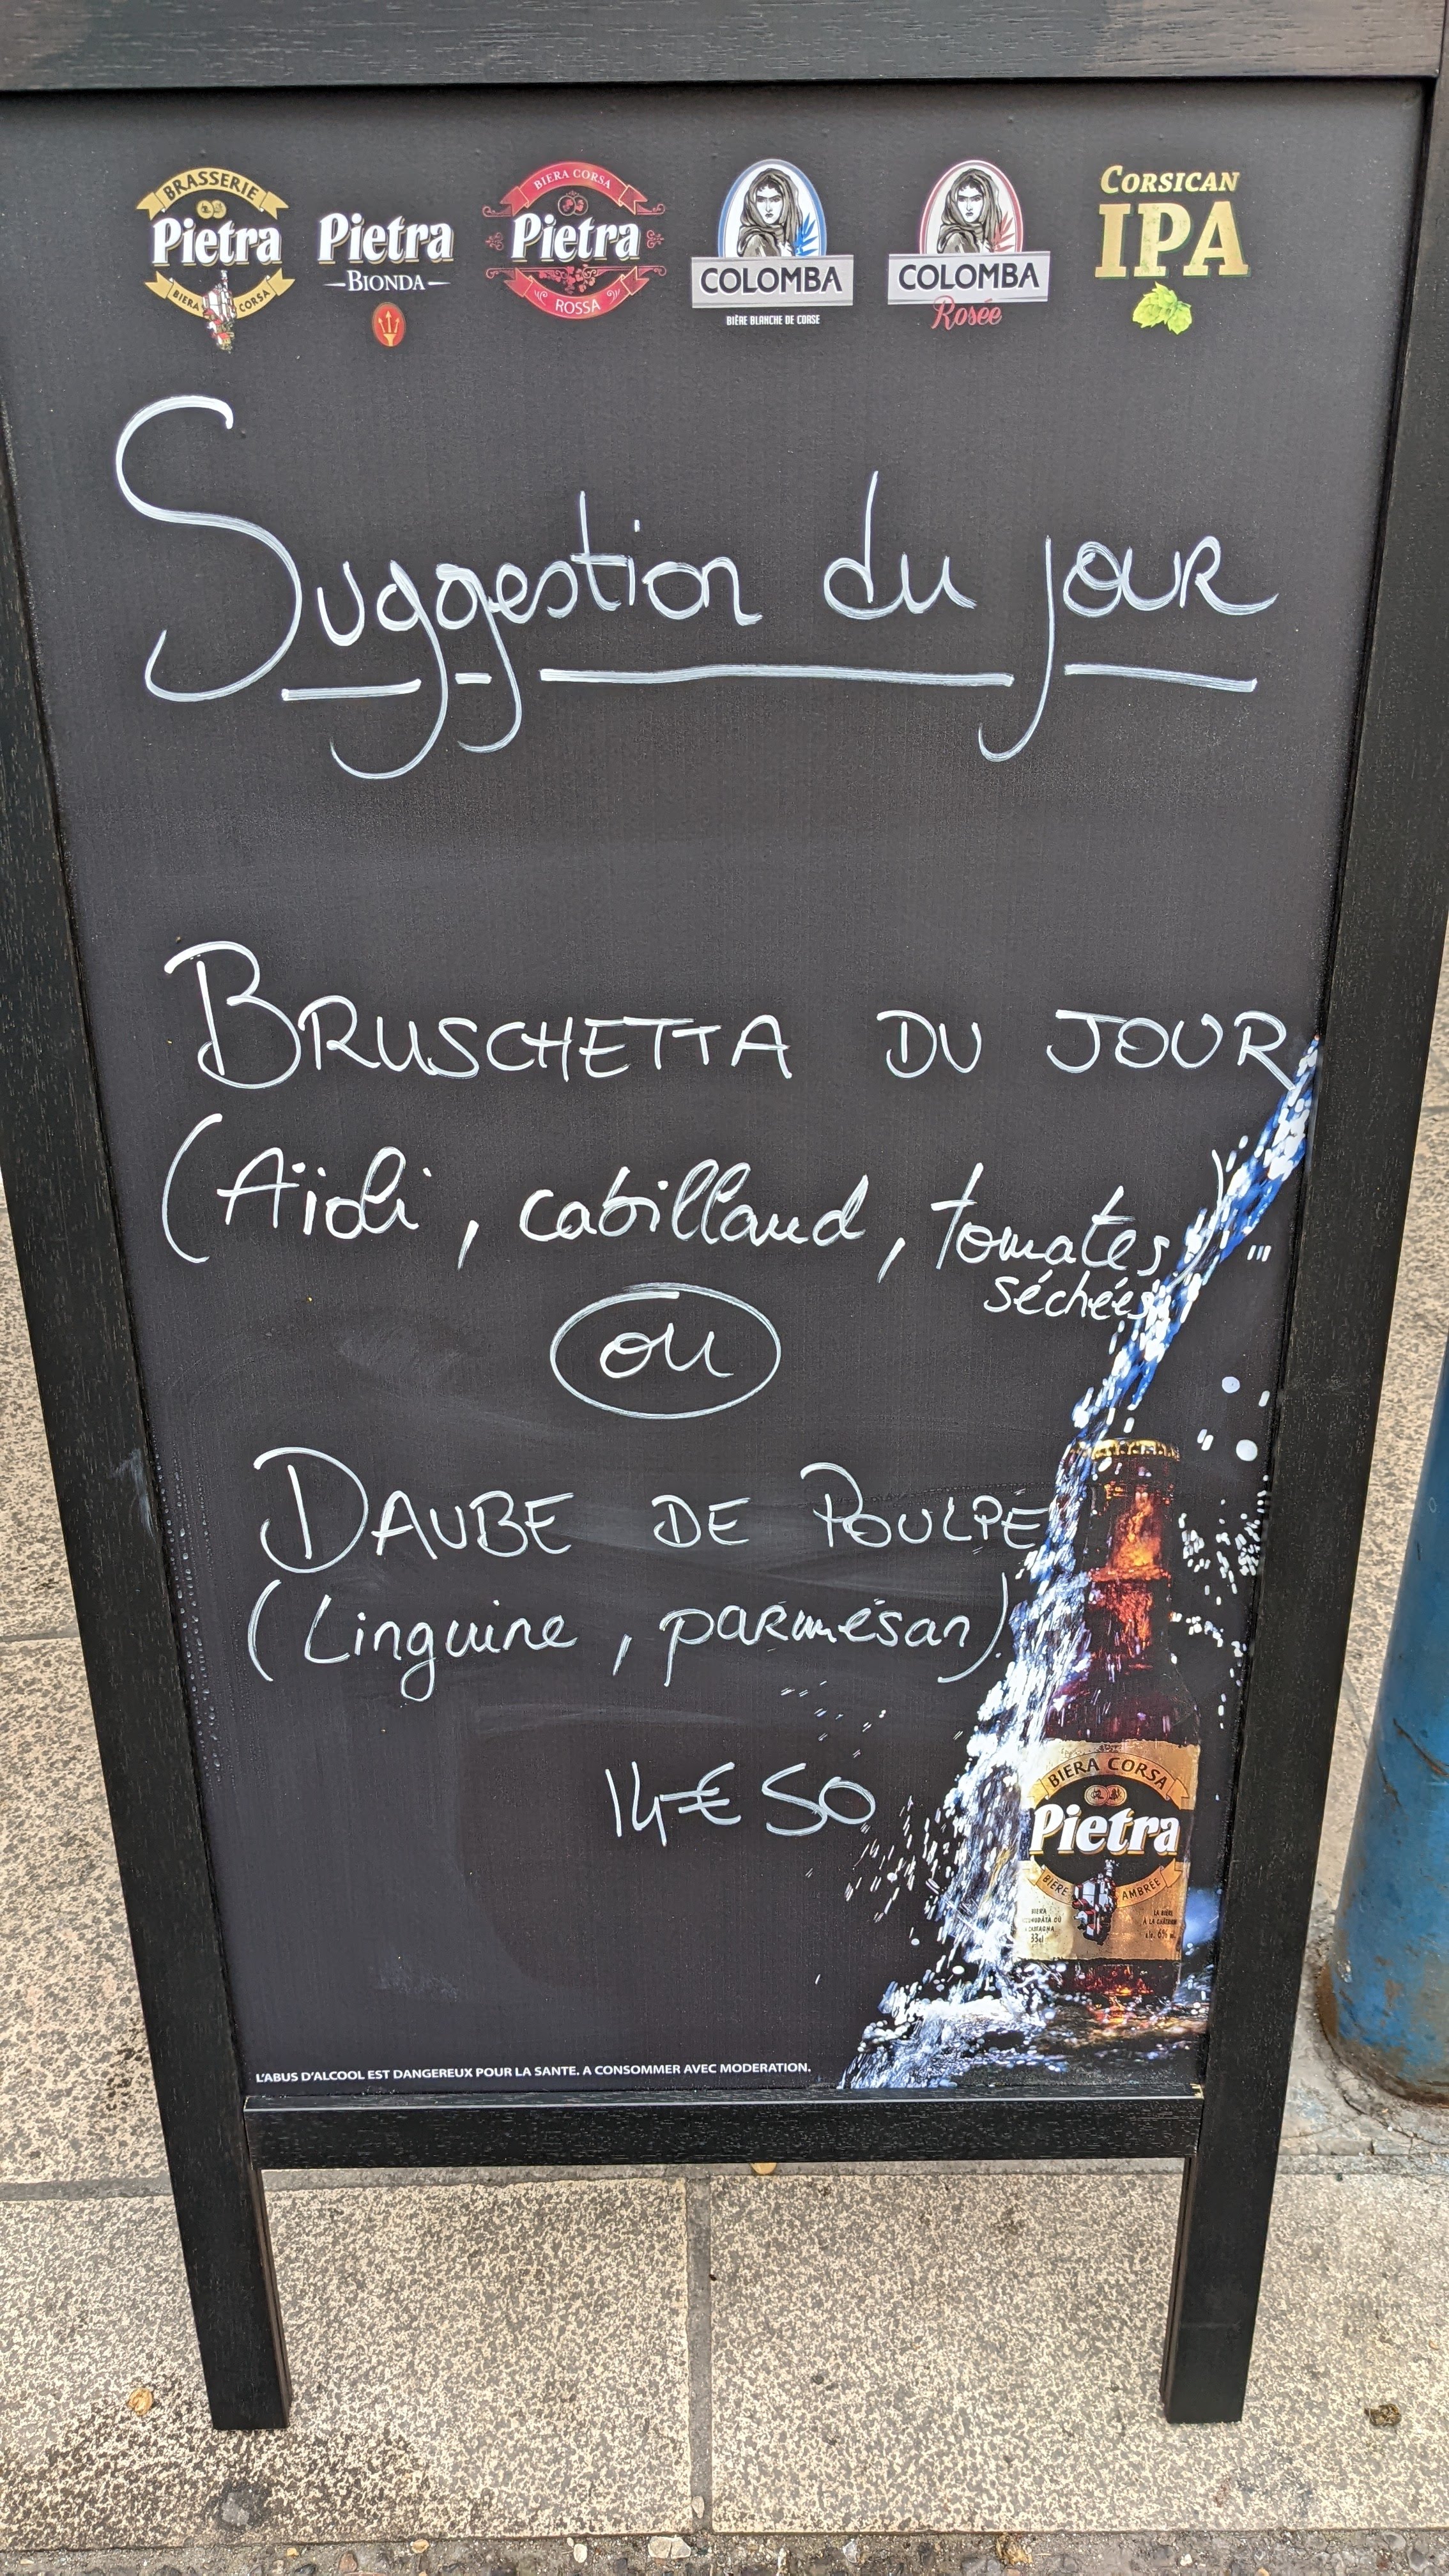 BRASSERIE
Pietra
BIERA CORSA
Pietra
BIONDA
BIERA CORSA
Pietra
ROSSA
COLOMBA
BIÈRE BLANCHE DE CORSE
COLOMBA
Rosée
CORSICAN
IPA
Suggestion du jour
BRUSCHETTA DU JOUR
(Aïoli, cabillaud, tomates séchées) ...
ou
DAUBE DE POULPE
(Linguine, parmesan)
14€50
BIERA CORSA
Pietra
BIÈRE AMBRÉE
BIERA
CASTAGNA
33cl
LA BIÈRE
alc. 6% vol.
L'ABUS D'ALCOOL EST DANGEREUX POUR LA SANTE. A CONSOMMER AVEC MODERATION.